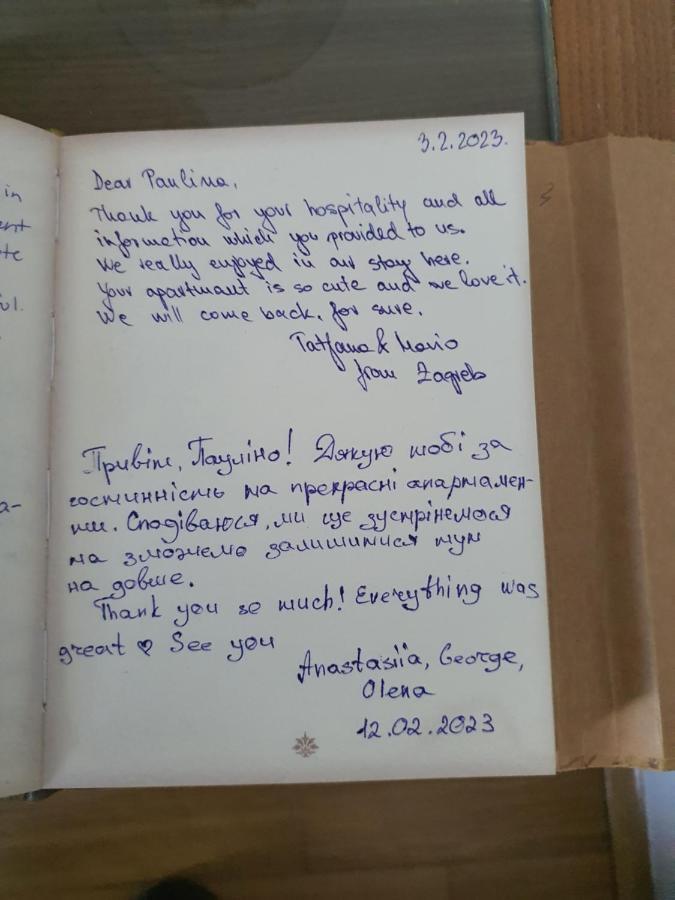 in
ent
te
ul.
a-
3.2.2023.
Dear Paulina,
Thank you for your hospitality and all
information which you provided to us.
We really enjoyed in our stay here.
Your apartmant is so cute and we love it.
We will come back, for sure.
Tatjana & Mario
from Zagreb
Привіт, Пауліно! Дякую тобі за
гостинність та прекрасні апартамен-
ти. Сподіваюся, ми ще зустрінемося
та зможемо залишитися тут
на довше.
Thank you so much! Everything was
great ♥ See you
Anastasiia, George,
Olena
12.02.2023